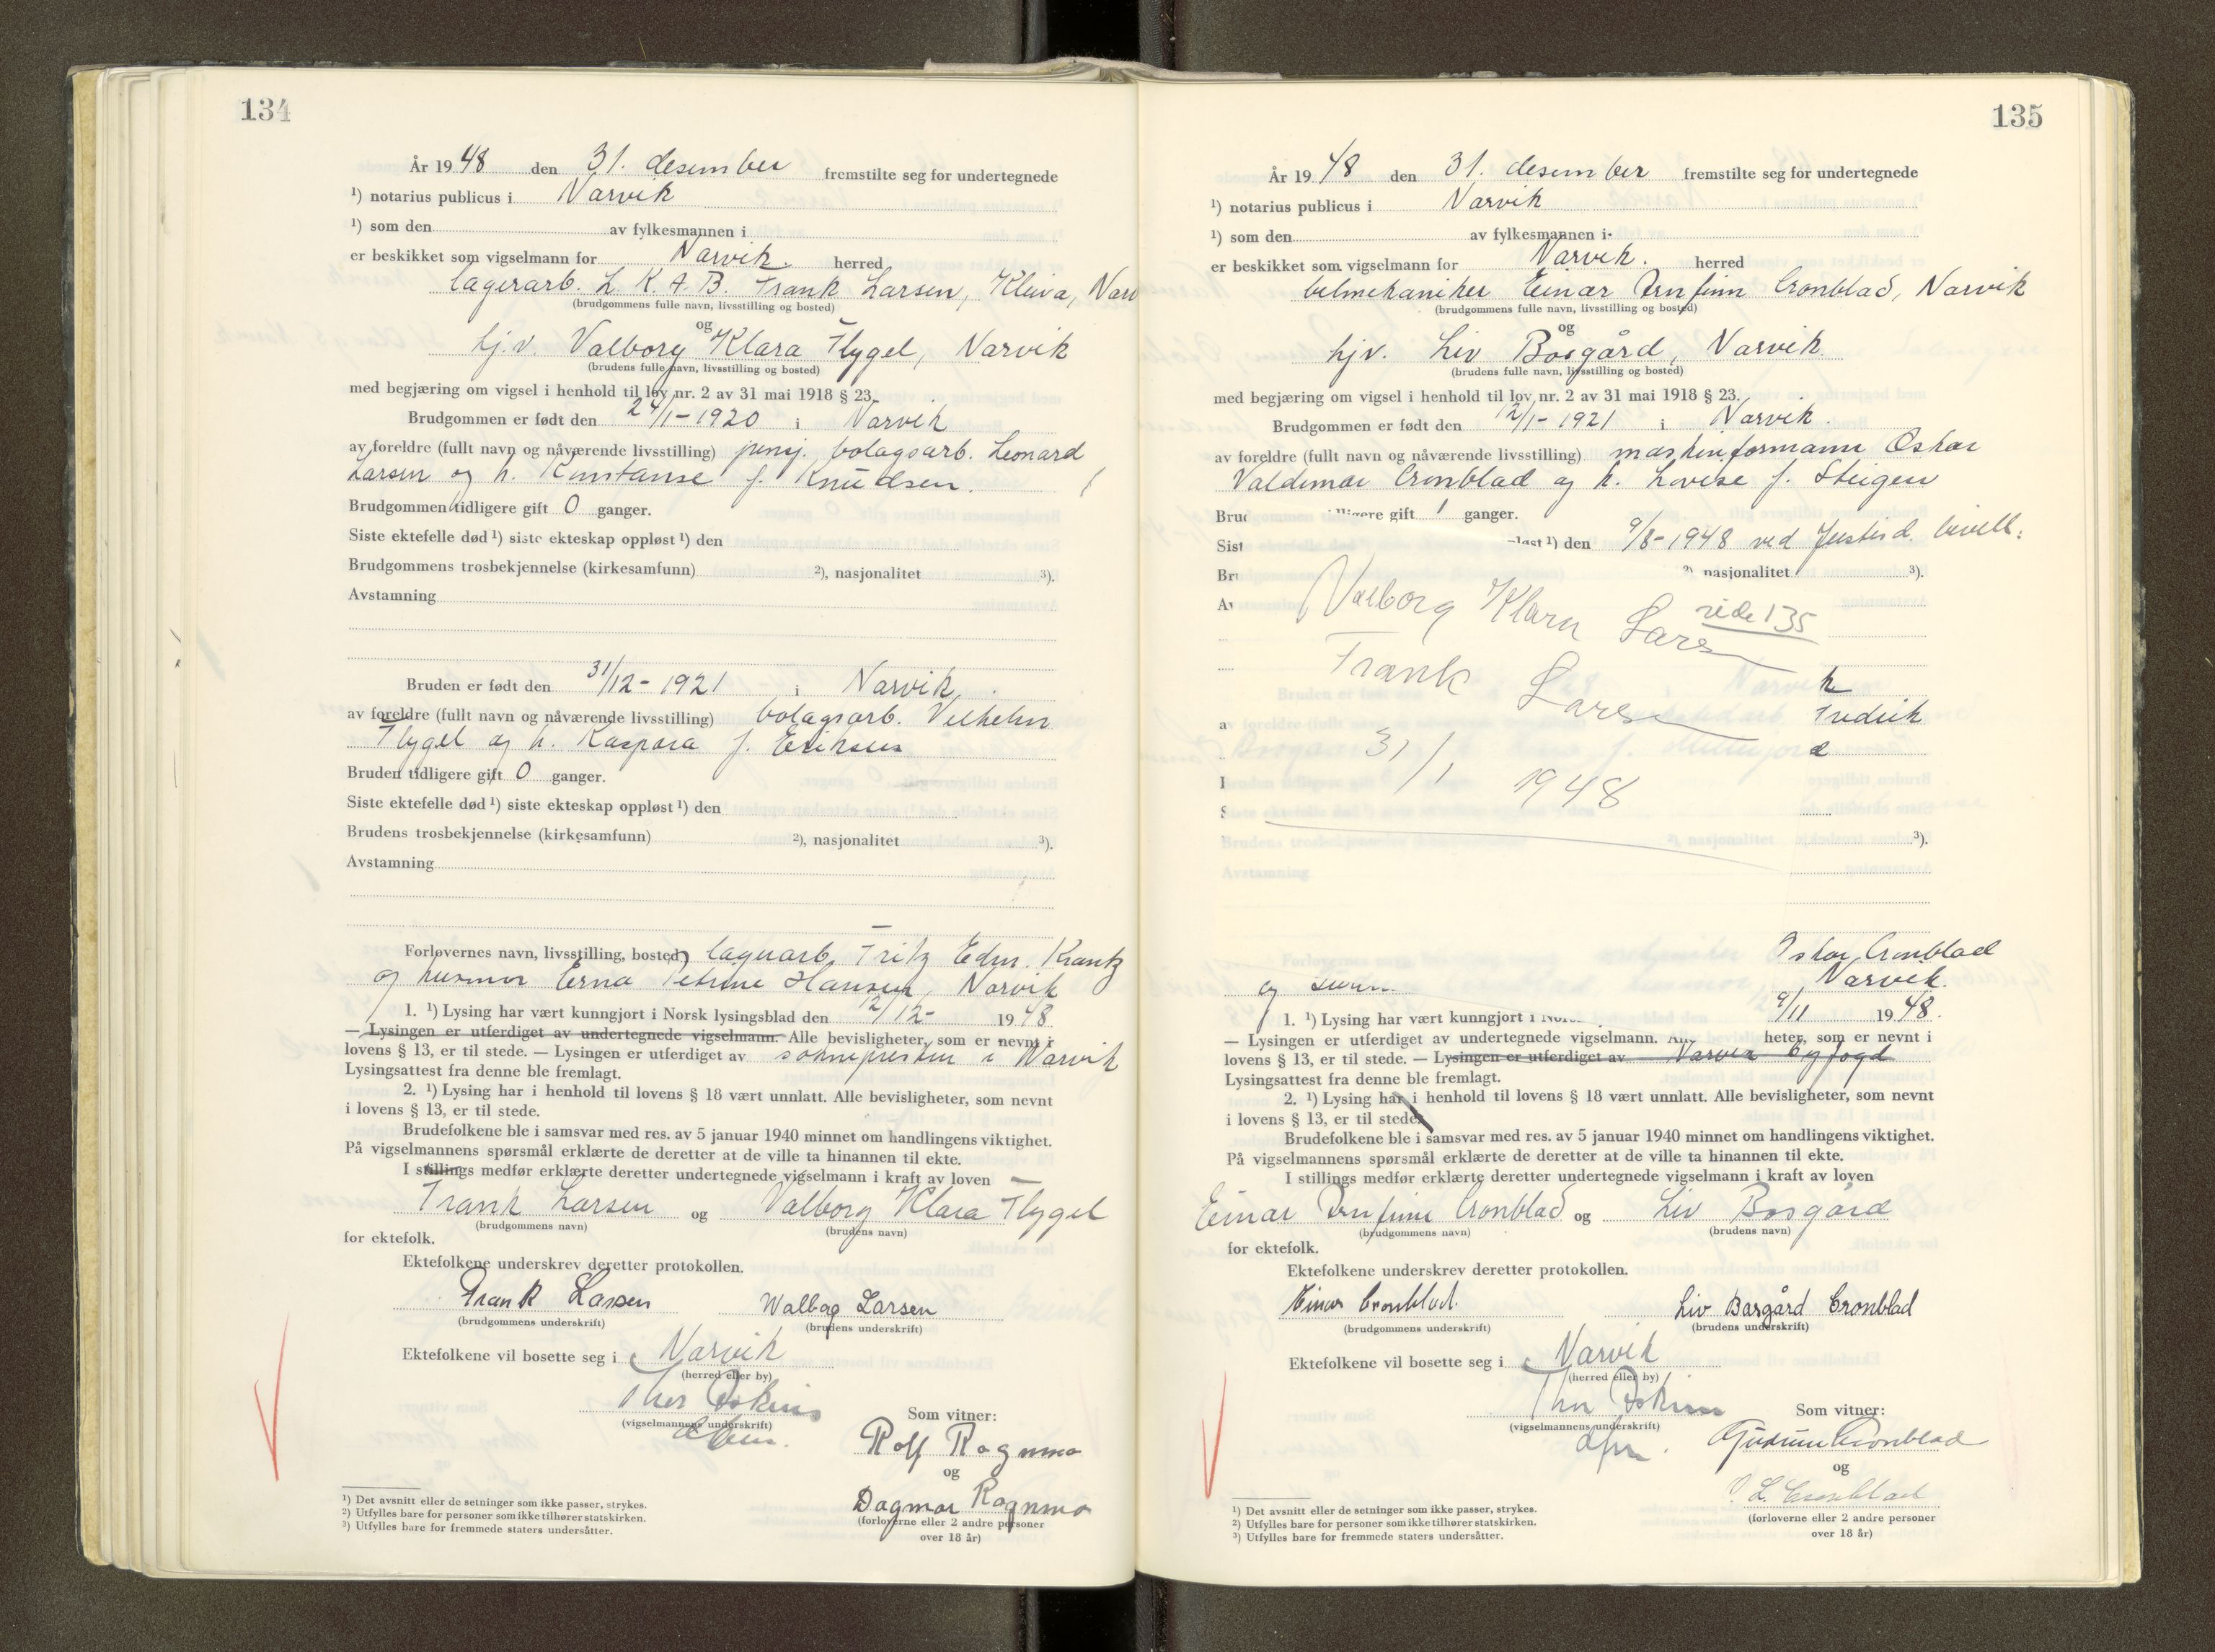 134
År 1948 den 31. desember fremstilte seg for undertegnede
¹) notarius publicus i Narvik
¹) som den av fylkesmannen i
er beskikket som vigselmann for Narvik. herred
lagerarb. L. K. A. B. Frank Larsen, Kleiva, Narv
(brudgommens fulle navn, livsstilling og bosted)
og
hj.v. Valborg Klara Flygel, Narvik
(brudens fulle navn, livsstilling og bosted)
med begjæring om vigsel i henhold til lov nr. 2 av 31 mai 1918 § 23.
Brudgommen er født den 24/1-1920 i Narvik
av foreldre (fullt navn og nåværende livsstilling) pensj. bolagsarb. Leonard
Larsen og h. Konstanse f. Knudsen.
Brudgommen tidligere gift 0 ganger.
Siste ektefelle død ¹) siste ekteskap oppløst ¹) den
Brudgommens trosbekjennelse (kirkesamfunn) ²), nasjonalitet ³).
Avstamning
Bruden er født den 31/12-1921 i Narvik
av foreldre (fullt navn og nåværende livsstilling) bolagsarb. Vilhelm
Flygel og h. Kaspara f. Eriksen
Bruden tidligere gift 0 ganger.
Siste ektefelle død ¹) siste ekteskap oppløst ¹) den
Brudens trosbekjennelse (kirkesamfunn) ²), nasjonalitet ³).
Avstamning
Forlovernes navn, livsstilling, bosted: lagerarb. Fritz Edm. Krantz
og husmor Erna Petrine Hansen, Narvik
1. ¹) Lysing har vært kunngjort i Norsk lysingsblad den 12/12- 1948
— Lysingen er utferdiget av undertegnede vigselmann. Alle bevisligheter, som er nevnt i
lovens § 13, er til stede. — Lysingen er utferdiget av soknepresten i Narvik
Lysingsattest fra denne ble fremlagt.
2. ¹) Lysing har i henhold til lovens § 18 vært unnlatt. Alle bevisligheter, som nevnt
i lovens § 13, er til stede.
Brudefolkene ble i samsvar med res. av 5 januar 1940 minnet om handlingens viktighet.
På vigselmannens spørsmål erklærte de deretter at de ville ta hinannen til ekte.
I stillings medfør erklærte deretter undertegnede vigselmann i kraft av loven
Frank Larsen og Valborg Klara Flygel
(brudgommens navn) (brudens navn)
for ektefolk.
Ektefolkene underskrev deretter protokollen.
Frank Larsen Walborg Larsen
(brudgommens underskrift) (brudens underskrift)
Ektefolkene vil bosette seg i Narvik
(herred eller by)
Thor
(vigselmannens underskrift)
Som vitner:
Rolf Ragnmo
og
Dagmar Ragnmo
(forloverne eller 2 andre personer
over 18 år)
¹) Det avsnitt eller de setninger som ikke passer, strykes.
²) Utfylles bare for personer som ikke tilhører statskirken.
³) Utfylles bare for fremmede staters undersåtter.
135
År 1948 den 31. desember fremstilte seg for undertegnede
¹) notarius publicus i Narvik
¹) som den av fylkesmannen i
er beskikket som vigselmann for Narvik. herred
bilmekaniker Einar Arnfinn Cronblad, Narvik
(brudgommens fulle navn, livsstilling og bosted)
og
hjv. Liv Bosgård, Narvik
(brudens fulle navn, livsstilling og bosted)
med begjæring om vigsel i henhold til lov nr. 2 av 31 mai 1918 § 23.
Brudgommen er født den 12/1-1921 i Narvik.
av foreldre (fullt navn og nåværende livsstilling) maskinformann Oskar
Valdemar Cronblad og h. Lovise f. Steigen
Bru gift 1 ganger.
Sist ¹) den 9/8-1948 ved Justisd. bevill.
Br nasjonalitet ³).
Av
Valborg Klara Lars
side 135
Frank Larse
k
a Fredrik
31/1 1948
Oskar Cronblad
og Narvik.
1. ¹) Lysing har vært kunngjort i 9/11 1948.
— Lysingen er utferdiget av undertegnede vigselmann. heter, som er nevnt i
lovens § 13, er til stede. — Lysingen er utferdiget av Narvik byfogd
Lysingsattest fra denne ble fremlagt.
2. ¹) Lysing har i henhold til lovens § 18 vært unnlatt. Alle bevisligheter, som nevnt
i lovens § 13, er til stede.
Brudefolkene ble i samsvar med res. av 5 januar 1940 minnet om handlingens viktighet.
På vigselmannens spørsmål erklærte de deretter at de ville ta hinannen til ekte.
I stillings medfør erklærte deretter undertegnede vigselmann i kraft av loven
Einar Arnfinn Cronblad og Liv Bosgård
(brudgommens navn) (brudens navn)
for ektefolk.
Ektefolkene underskrev deretter protokollen.
Einar Cronblad. Liv Bosgård Cronblad
(brudgommens underskrift) (brudens underskrift)
Ektefolkene vil bosette seg i Narvik
(herred eller by)
Thor
(vigselmannens underskrift)
Som vitner:
Gudrun Cronblad
og
L. Cronblad
(forloverne eller 2 andre personer
over 18 år)
¹) Det avsnitt eller de setninger som ikke passer, strykes.
²) Utfylles bare for personer som ikke tilhører statskirken.
³) Utfylles bare for fremmede staters undersåtter.